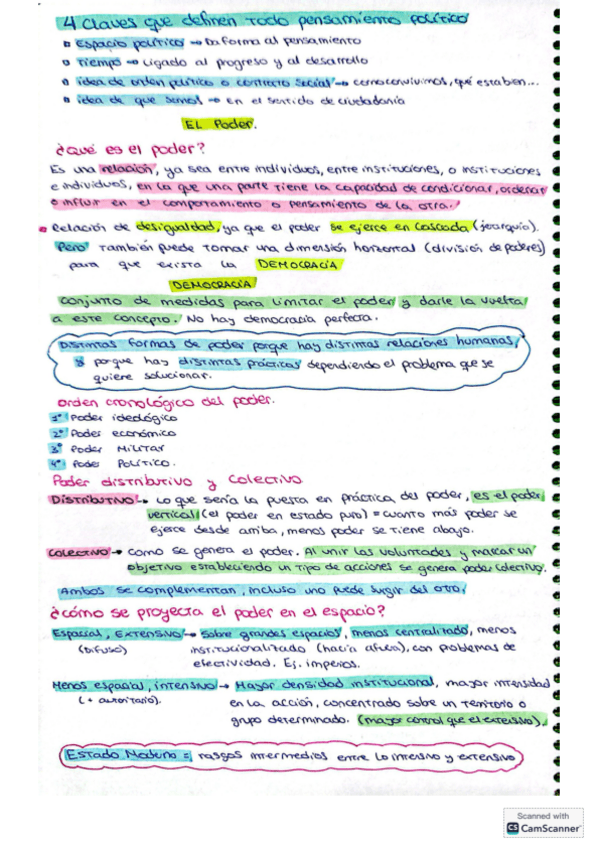 4 Claves que definen Todo pensamiento político
Espacio político → Da forma al pensamiento
Tiempo → Ligado al progreso y al desarrollo
idea de orden político o contrato social → como convivimos, qué esta bien...
idea de que somos → en el sentido de ciudadanía
EL Poder.
¿Qué es el poder?
Es una relación, ya sea entre individuos, entre instituciones, o instituciones
e individuos, en la que una parte tiene la capacidad de condicionar, ordenar
o influir en el comportamiento o pensamiento de la otra.
Relación de desigualdad, ya que el poder se ejerce en cascada (jerarquía).
Pero también puede tomar una dimensión horizontal (división de poderes)
para que exista la DEMOCRACIA
DEMOCRACIA
Conjunto de medidas para limitar el poder y darle la vuelta
a este concepto. No hay democracia perfecta.
Distintas formas de poder porque hay distintas relaciones humanas,
y porque hay distintas prácticas dependiendo el problema que se
quiere solucionar.
Orden cronológico del poder.
1º Poder ideológico
2º Poder económico
3º Poder Militar
4º Poder Político.
Poder distributivo y Colectivo
Distributivo → Lo que sería la puesta en práctica del poder, es el poder
vertical (el poder en estado puro) = cuanto más poder se
ejerce desde arriba, menos poder se tiene abajo.
Colectivo → Como se genera el poder. Al unir las voluntades y marcar un
objetivo estableciendo un tipo de acciones se genera poder colectivo.
Ambos se complementan, incluso uno puede surgir del otro.
¿Cómo se proyecta el poder en el espacio?
Espacial, Extensivo → Sobre grandes espacios, menos centralizado, menos
(Difuso) institucionalizado (hacia afuera), con problemas de
efectividad. Ej. imperios.
Menos espacial, intensivo → Mayor densidad institucional, mayor intensidad
(+ autoritario). en la acción, concentrado sobre un territorio o
grupo determinado. (mayor control que el extensivo).
Estado Moderno = rasgos intermedios entre lo intensivo y extensivo
Scanned with
CS CamScanner